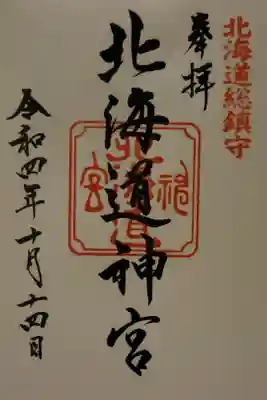 北海道総鎮守
奉拝
北海道神宮
令和四年十月十四日